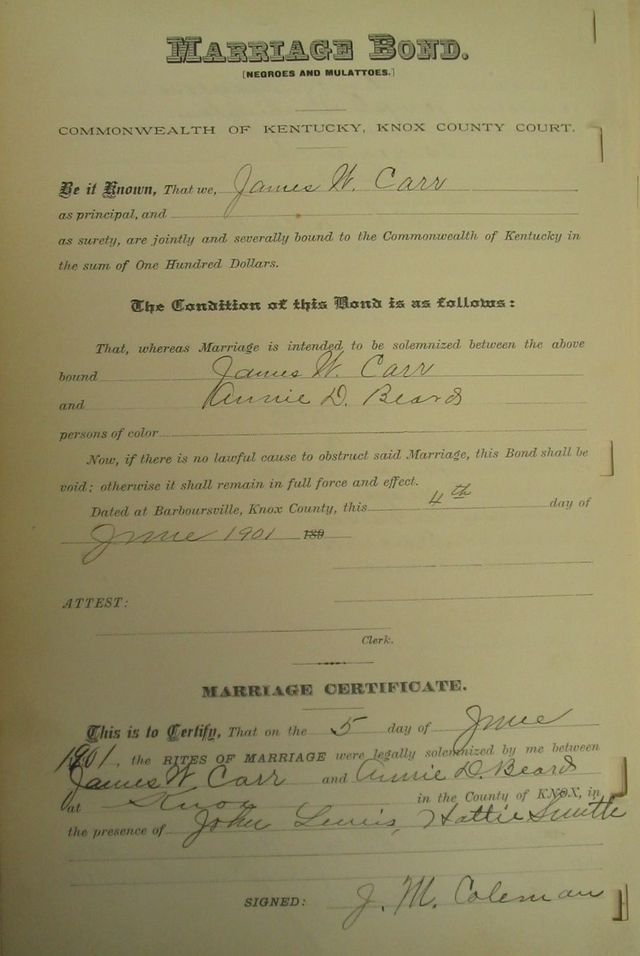 MARRIAGE BOND.
[NEGROES AND MULATTOES.]
COMMONWEALTH OF KENTUCKY, KNOX COUNTY COURT.
Be it Known, That we, James W. Carr
as principal, and
as surety, are jointly and severally bound to the Commonwealth of Kentucky in
the sum of One Hundred Dollars.
The Condition of this Bond is as follows:
That, whereas Marriage is intended to be solemnized between the above
bound James W. Carr
and Annie D. Beard
persons of color
Now, if there is no lawful cause to obstruct said Marriage, this Bond shall be
void; otherwise it shall remain in full force and effect.
Dated at Barboursville, Knox County, this 4th day of
June 1901 189
ATTEST:
Clerk.
MARRIAGE CERTIFICATE.
This is to Certify, That on the 5 day of June
1901, the RITES OF MARRIAGE were legally solemnized by me between
James W Carr and Annie D. Beard
at Knox in the County of KNOX, in
the presence of John Lewis, Hattie Smith
SIGNED: J. M. Coleman